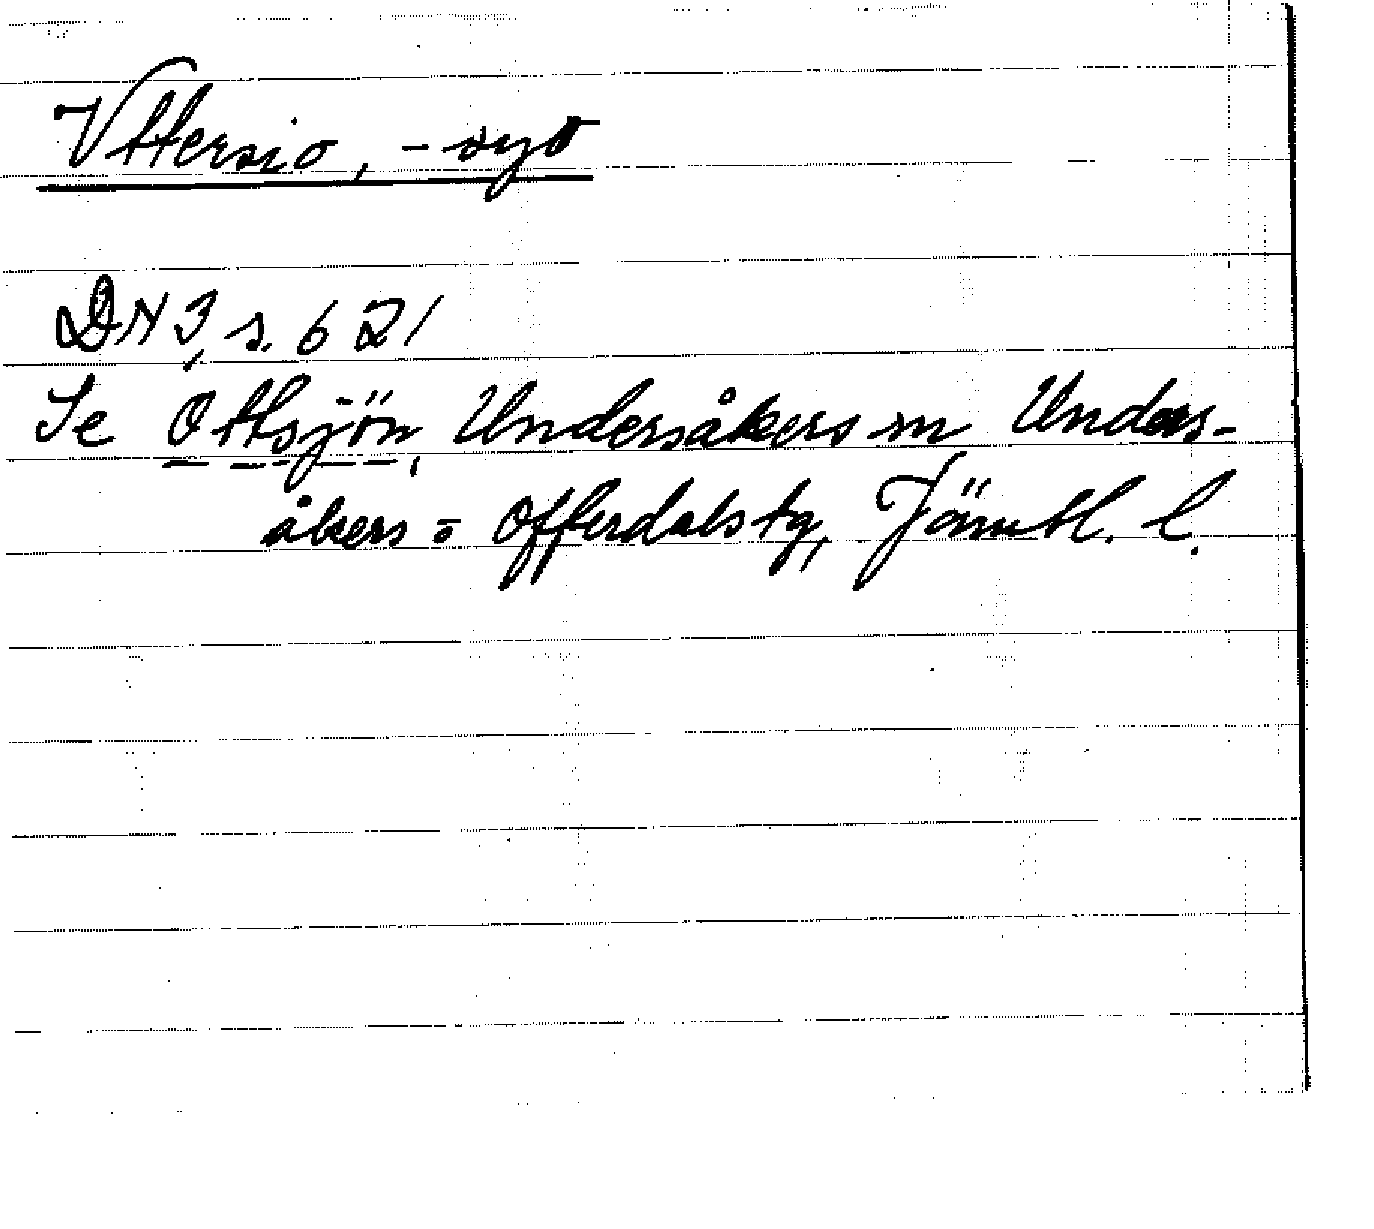 Vttersio, -syo
DN 3, s. 621
Se Ottsjön, Undersåkers sn Unders-
åkers = Offerdals tg, Jämtl. l.